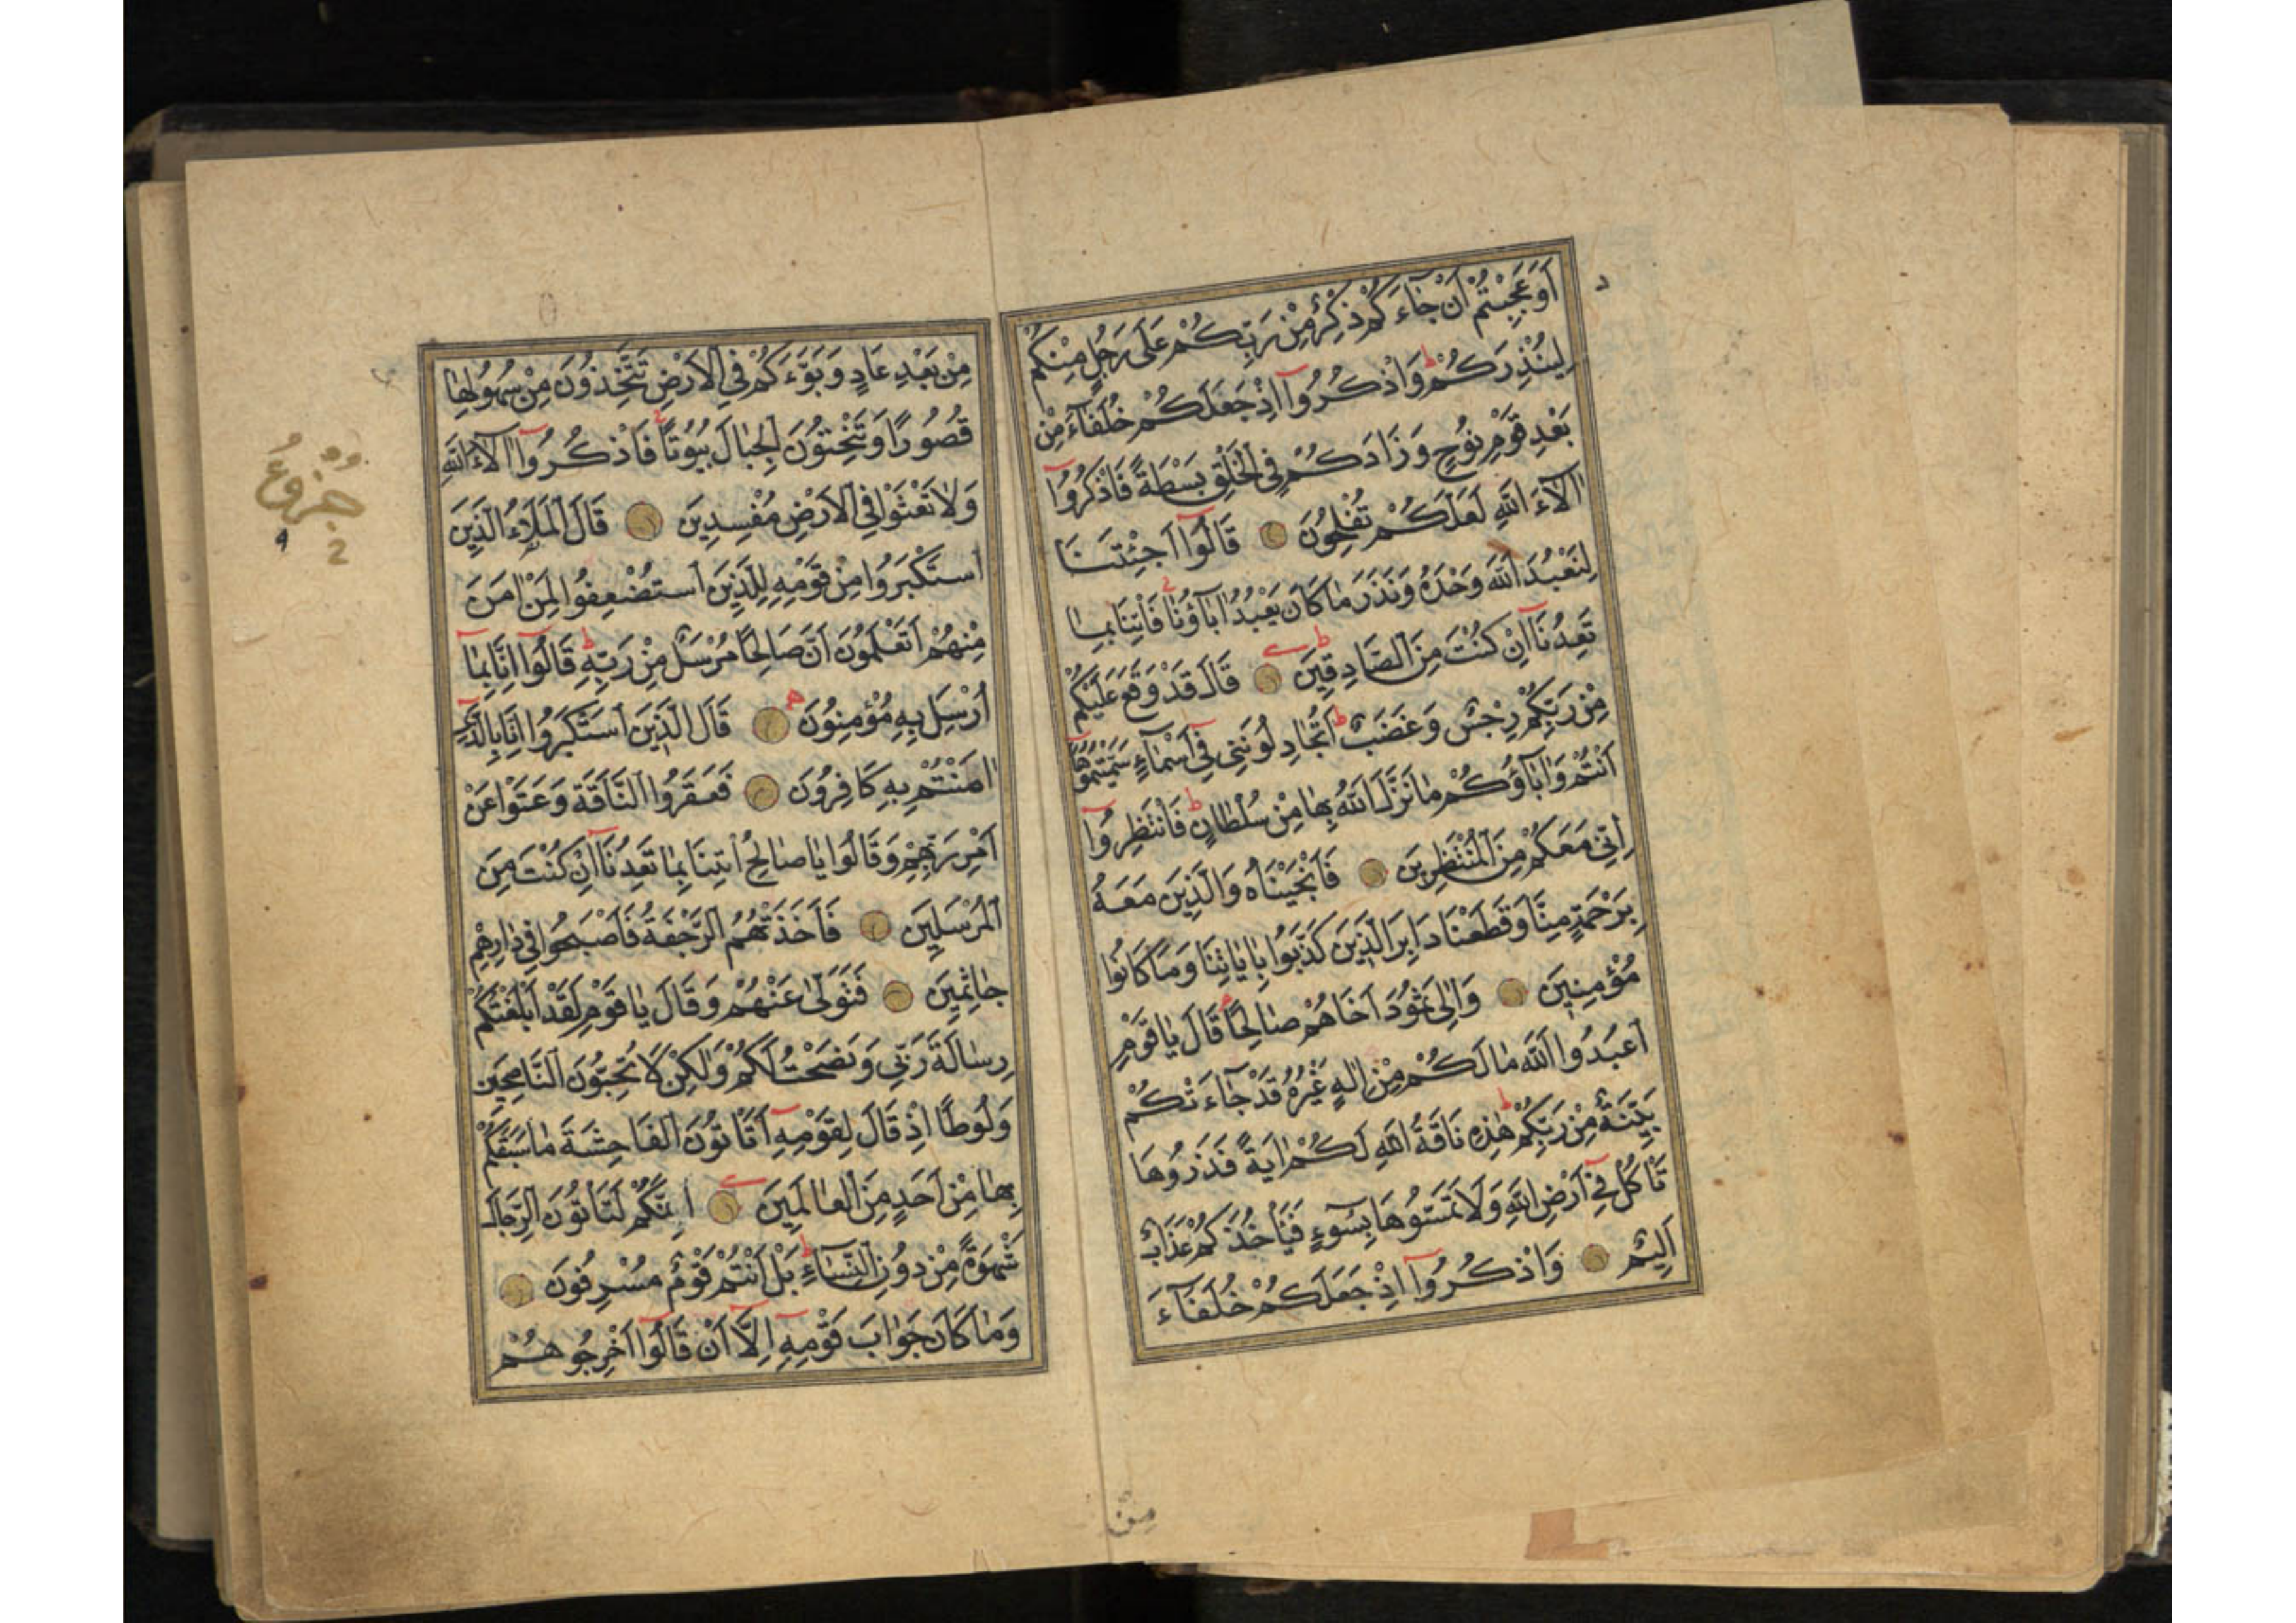 اَوَعَجِبْتُمْ اَنْ جَٓاءَكُمْ ذِكْرٌ مِنْ رَبِّكُمْ عَلٰى رَجُلٍ مِنْكُمْ
لِيُنْذِرَكُمْ وَاذْكُرُٓوا اِذْ جَعَلَكُمْ خُلَفَٓاءَ مِنْ
بَعْدِ قَوْمِ نُوحٍ وَزَادَكُمْ فِي الْخَلْقِ بَسْطَةً فَاذْكُرُٓوا
اٰلَٓاءَ اللّٰهِ لَعَلَّكُمْ تُفْلِحُونَ قَالُٓوا اَجِئْتَنَا
لِنَعْبُدَ اللّٰهَ وَحْدَهُ وَنَذَرَ مَا كَانَ يَعْبُدُ اٰبَٓاؤُنَا فَاْتِنَا بِمَا
تَعِدُنَٓا اِنْ كُنْتَ مِنَ الصَّادِقِينَ قَالَ قَدْ وَقَعَ عَلَيْكُمْ
مِنْ رَبِّكُمْ رِجْسٌ وَغَضَبٌ اَتُجَادِلُونَنِي فِٓي اَسْمَٓاءٍ سَمَّيْتُمُوهَٓا
اَنْتُمْ وَاٰبَٓاؤُكُمْ مَا نَزَّلَ اللّٰهُ بِهَا مِنْ سُلْطَانٍ فَانْتَظِرُٓوا
اِنِّي مَعَكُمْ مِنَ الْمُنْتَظِرِينَ فَاَنْجَيْنَاهُ وَالَّذِينَ مَعَهُ
بِرَحْمَةٍ مِنَّا وَقَطَعْنَا دَابِرَ الَّذِينَ كَذَّبُوا بِاٰيَاتِنَا وَمَا كَانُوا
مُؤْمِنِينَ وَاِلٰى ثَمُودَ اَخَاهُمْ صَالِحًا قَالَ يَا قَوْمِ
اعْبُدُوا اللّٰهَ مَا لَكُمْ مِنْ اِلٰهٍ غَيْرُهُ قَدْ جَٓاءَتْكُمْ
بَيِّنَةٌ مِنْ رَبِّكُمْ هٰذِهِ نَاقَةُ اللّٰهِ لَكُمْ اٰيَةً فَذَرُوهَا
تَاْكُلْ فِٓي اَرْضِ اللّٰهِ وَلَا تَمَسُّوهَا بِسُٓوءٍ فَيَاْخُذَكُمْ عَذَابٌ
اَلِيمٌ وَاذْكُرُٓوا اِذْ جَعَلَكُمْ خُلَفَٓاءَ
مِنْ
مِنْ بَعْدِ عَادٍ وَبَوَّءَكُمْ فِي الْاَرْضِ تَتَّخِذُونَ مِنْ سُهُولِهَا
قُصُورًا وَتَنْحِتُونَ الْجِبَالَ بُيُوتًا فَاذْكُرُٓوا اٰلَٓاءَ اللّٰهِ
وَلَا تَعْثَوْا فِي الْاَرْضِ مُفْسِدِينَ قَالَ الْمَلَاُ الَّذِينَ
اسْتَكْبَرُوا مِنْ قَوْمِهِ لِلَّذِينَ اسْتُضْعِفُوا لِمَنْ اٰمَنَ
مِنْهُمْ اَتَعْلَمُونَ اَنَّ صَالِحًا مُرْسَلٌ مِنْ رَبِّهِ قَالُٓوا اِنَّا بِمَٓا
اُرْسِلَ بِهِ مُؤْمِنُونَ قَالَ الَّذِينَ اسْتَكْبَرُٓوا اِنَّا بِالَّذِٓي
اٰمَنْتُمْ بِهِ كَافِرُونَ فَعَقَرُوا النَّاقَةَ وَعَتَوْا عَنْ
اَمْرِ رَبِّهِمْ وَقَالُوا يَا صَالِحُ ائْتِنَا بِمَا تَعِدُنَٓا اِنْ كُنْتَ مِنَ
الْمُرْسَلِينَ فَاَخَذَتْهُمُ الرَّجْفَةُ فَاَصْبَحُوا فِي دَارِهِمْ
جَاثِمِينَ فَتَوَلّٰى عَنْهُمْ وَقَالَ يَا قَوْمِ لَقَدْ اَبْلَغْتُكُمْ
رِسَالَةَ رَبِّي وَنَصَحْتُ لَكُمْ وَلٰكِنْ لَا تُحِبُّونَ النَّاصِحِينَ
وَلُوطًا اِذْ قَالَ لِقَوْمِهِٓ اَتَاْتُونَ الْفَاحِشَةَ مَا سَبَقَكُمْ
بِهَا مِنْ اَحَدٍ مِنَ الْعَالَمِينَ اِنَّكُمْ لَتَاْتُونَ الرِّجَالَ
شَهْوَةً مِنْ دُونِ النِّسَٓاءِ بَلْ اَنْتُمْ قَوْمٌ مُسْرِفُونَ
وَمَا كَانَ جَوَابَ قَوْمِهِٓ اِلَّٓا اَنْ قَالُٓوا اَخْرِجُوهُمْ